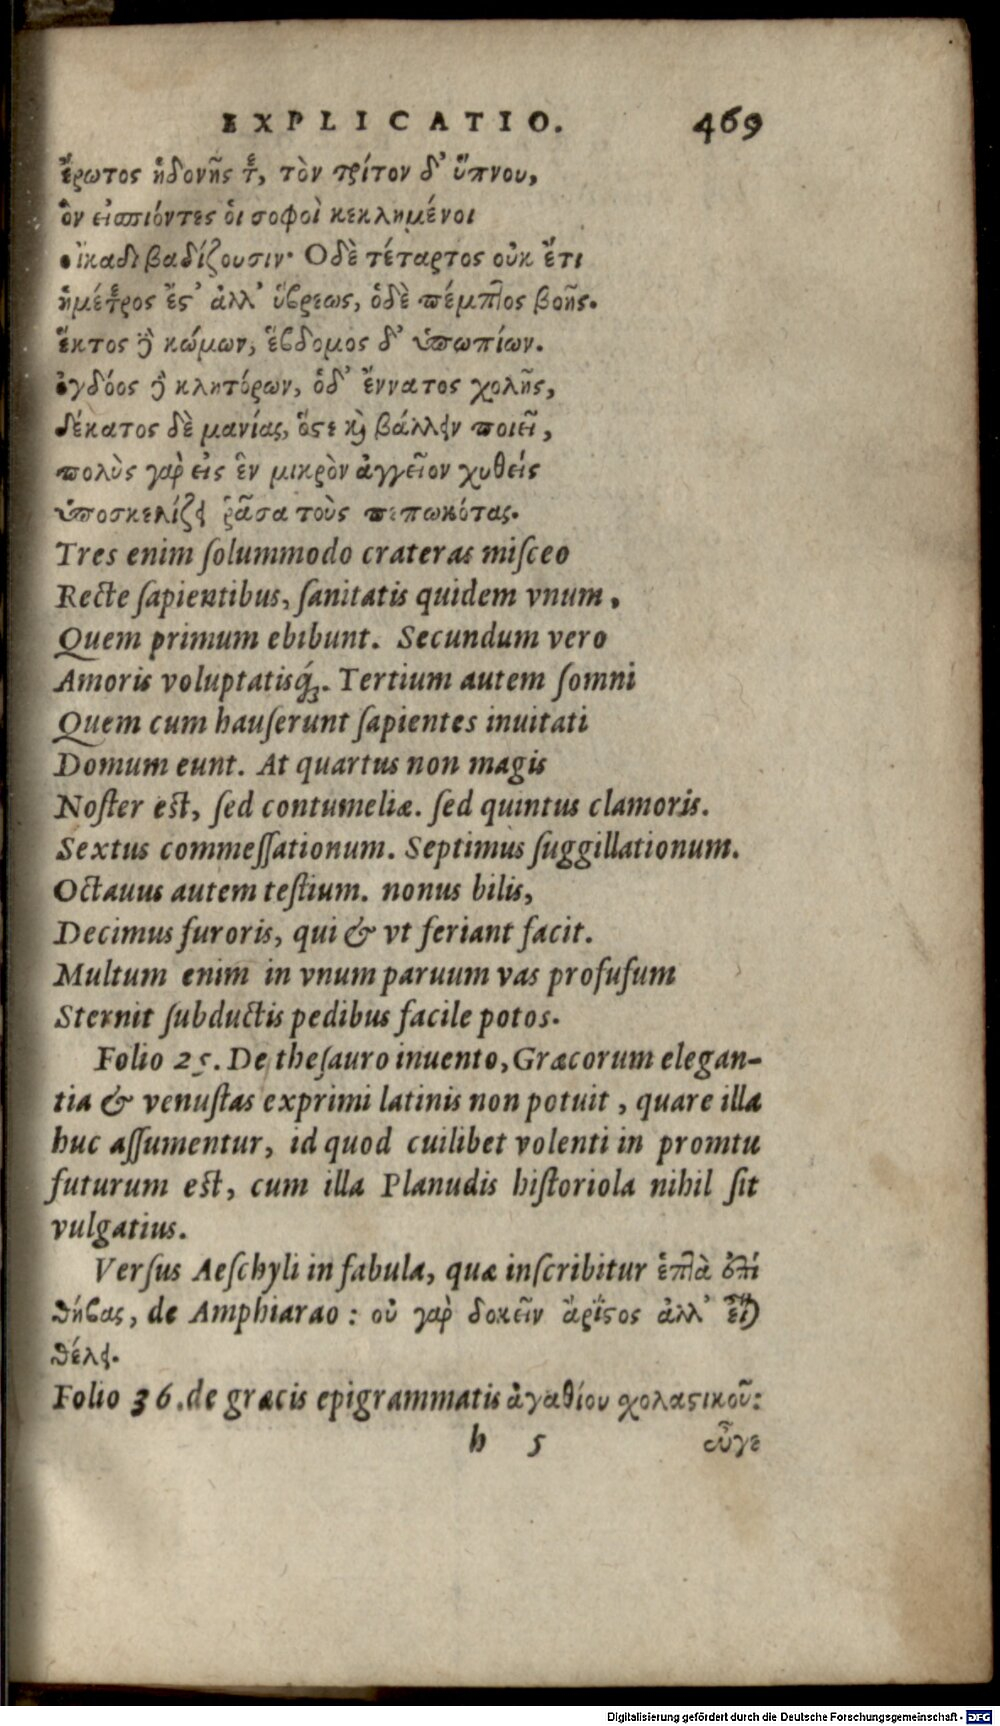 EXPLICATIO. 469
ἔρωτος ἡδονῆς τε, τὸν τρίτον δ' ὕπνου,
ὃν εἰσπιόντες οἱ σοφοὶ κεκλημένοι
οἴκαδε βαδίζουσιν· Ὁ δὲ τέταρτος οὐκ ἔτι
ἡμέτερος ἔς' ἀλλ' ὕβρεως, ὁ δὲ πέμπτος βοῆς.
ἕκτος δὲ κώμων, ἕβδομος δ' ὑπωπίων.
ὀγδόος δὲ κλητόρων, ὁ δ' ἔννατος χολῆς,
δέκατος δὲ μανίας, ὅςε καὶ βάλλειν ποιεῖ,
πολὺς γὰρ εἰς ἓν μικρὸν ἀγγεῖον χυθεὶς
ὑποσκελίζει ῥᾶσα τοὺς πεπωκότας.
Tres enim ſolummodo crateras miſceo
Recte ſapientibus, ſanitatis quidem vnum,
Quem primum ebibunt. Secundum vero
Amoris voluptatisq́;. Tertium autem ſomni
Quem cum hauſerunt ſapientes inuitati
Domum eunt. At quartus non magis
Noſter eſt, ſed contumeliæ. ſed quintus clamoris.
Sextus commeſſationum. Septimus ſuggillationum.
Octauus autem teſtium. nonus bilis,
Decimus furoris, qui & vt feriant facit.
Multum enim in vnum paruum vas profuſum
Sternit ſubductis pedibus facile potos.
Folio 25. De theſauro inuento, Græcorum elegan-
tia & venuſtas exprimi latinis non potuit, quare illa
huc aſſumentur, id quod cuilibet volenti in promtu
futurum eſt, cum illa Planudis hiſtoriola nihil ſit
vulgatius.
Verſus Aeſchyli in fabula, quæ inſcribitur ἑπτὰ ἐπὶ
θήβας, de Amphiarao: οὐ γὰρ δοκεῖν ἄριςος ἀλλ' εἶναι
θέλει.
Folio 36. de græcis epigrammatis ἀγαθίου σχολαςικοῦ:
h 5 εὖγε
Digitalisierung gefördert durch die Deutsche Forschungsgemeinschaft - DFG